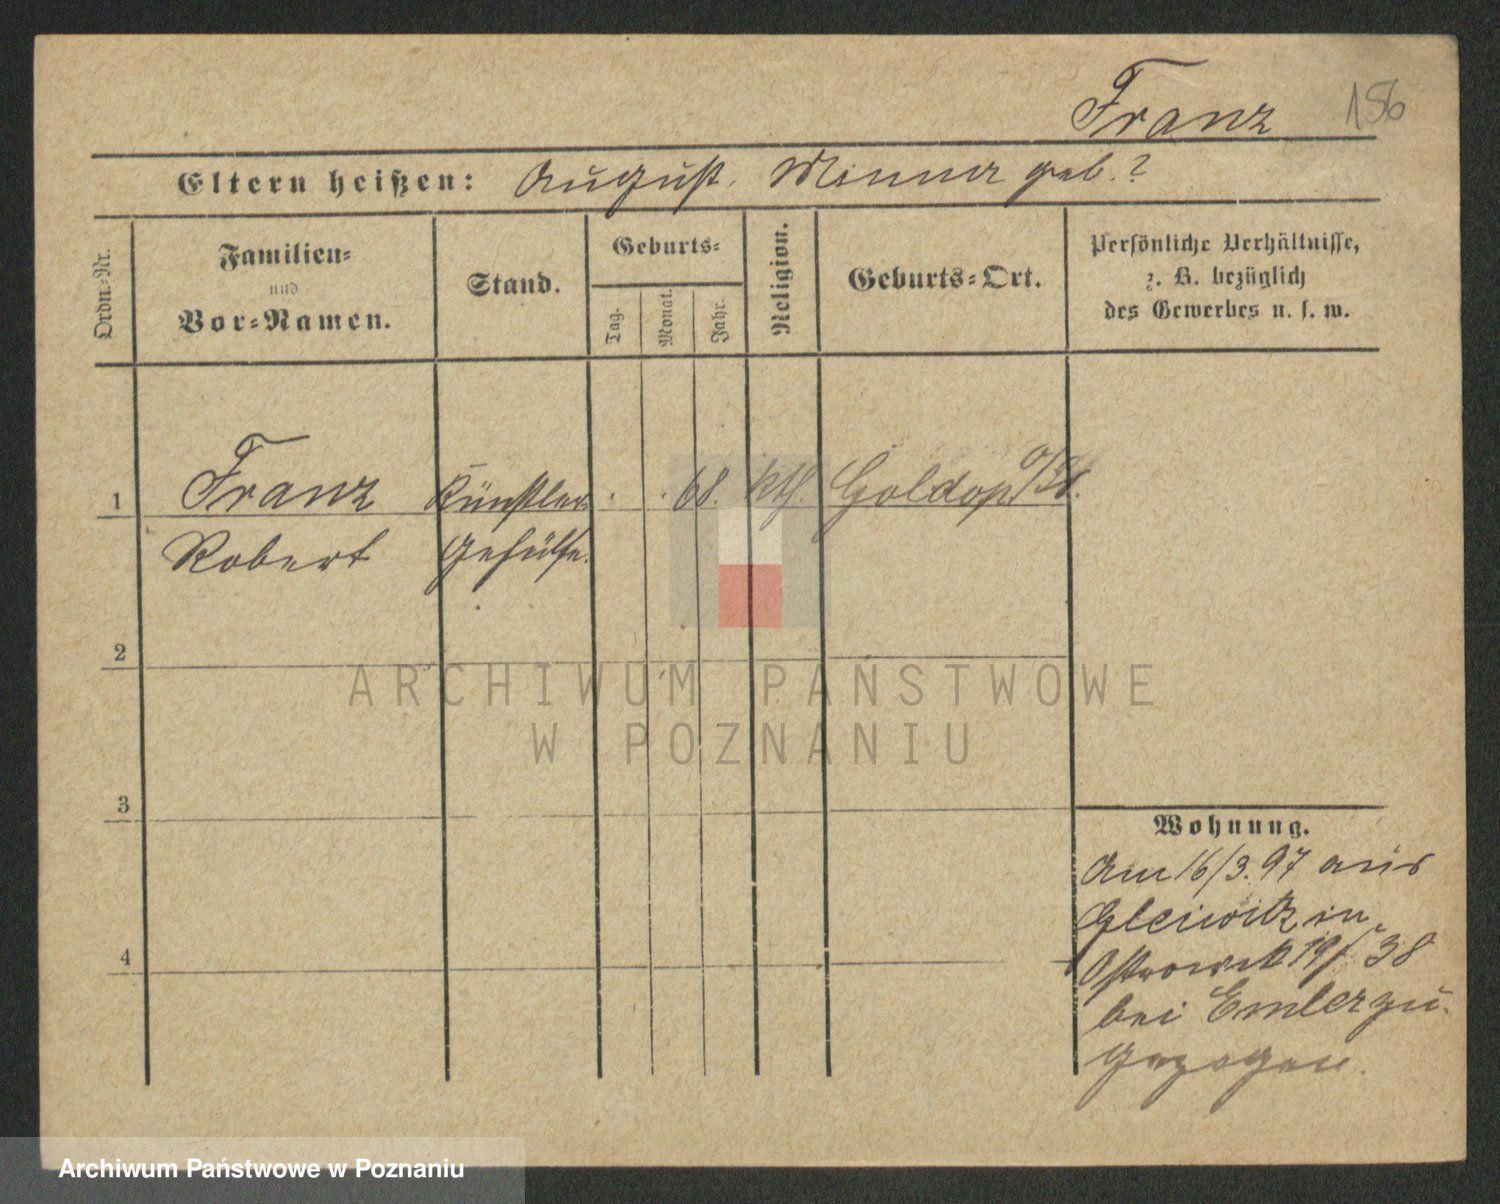 Franz 156
Eltern heißen: August. Minna geb.?
Ordn.-Nr.
Familien-
und
Vor-Namen.
Stand.
Geburts-
Tag.
Monat.
Jahr.
Religion.
Geburts-Ort.
Persönliche Verhältnisse,
z. B. bezüglich
des Gewerbes u. s. w.
1 Franz Künstler . . 68. kth.
Robert Gehülfe.
2
ARCHIWUM PAŃSTWOWE
W POZNANIU
3
Wohnung.
Am 16/3. 97 aus
Gleiwitz in
4
Ostrowek 19/ 38
bei Emler zu-
gezogen.
Archiwum Państwowe w Poznaniu